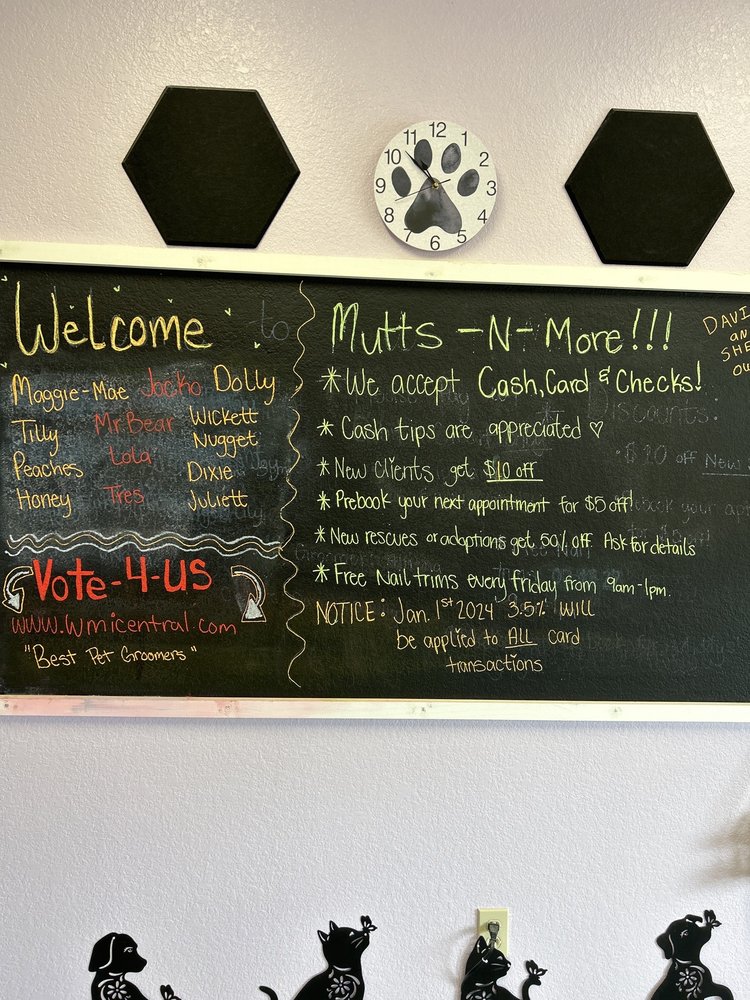 11 12 1
10 2
9 3
8 4
7 6 5
Welcome to
Maggie-Mae Jocko Dolly
Tilly Mr Bear Wickett
Nugget
Peaches Lola Dixie
Honey Tres Juliett
Vote-4-us
www.wmicentral.com
"Best Pet Groomers"
Mutts -N- More!!!
*We accept Cash, Card & Checks!
* Cash tips are appreciated ♡
* New clients get $10 off
* Prebook your next appointment for $5 off!
* New rescues or adoptions get 50% off Ask for details
* Free Nail trims every friday from 9am-1pm.
NOTICE: Jan. 1st 2024 3.5% will
be applied to ALL card
transactions
Discounts:
$10 off New